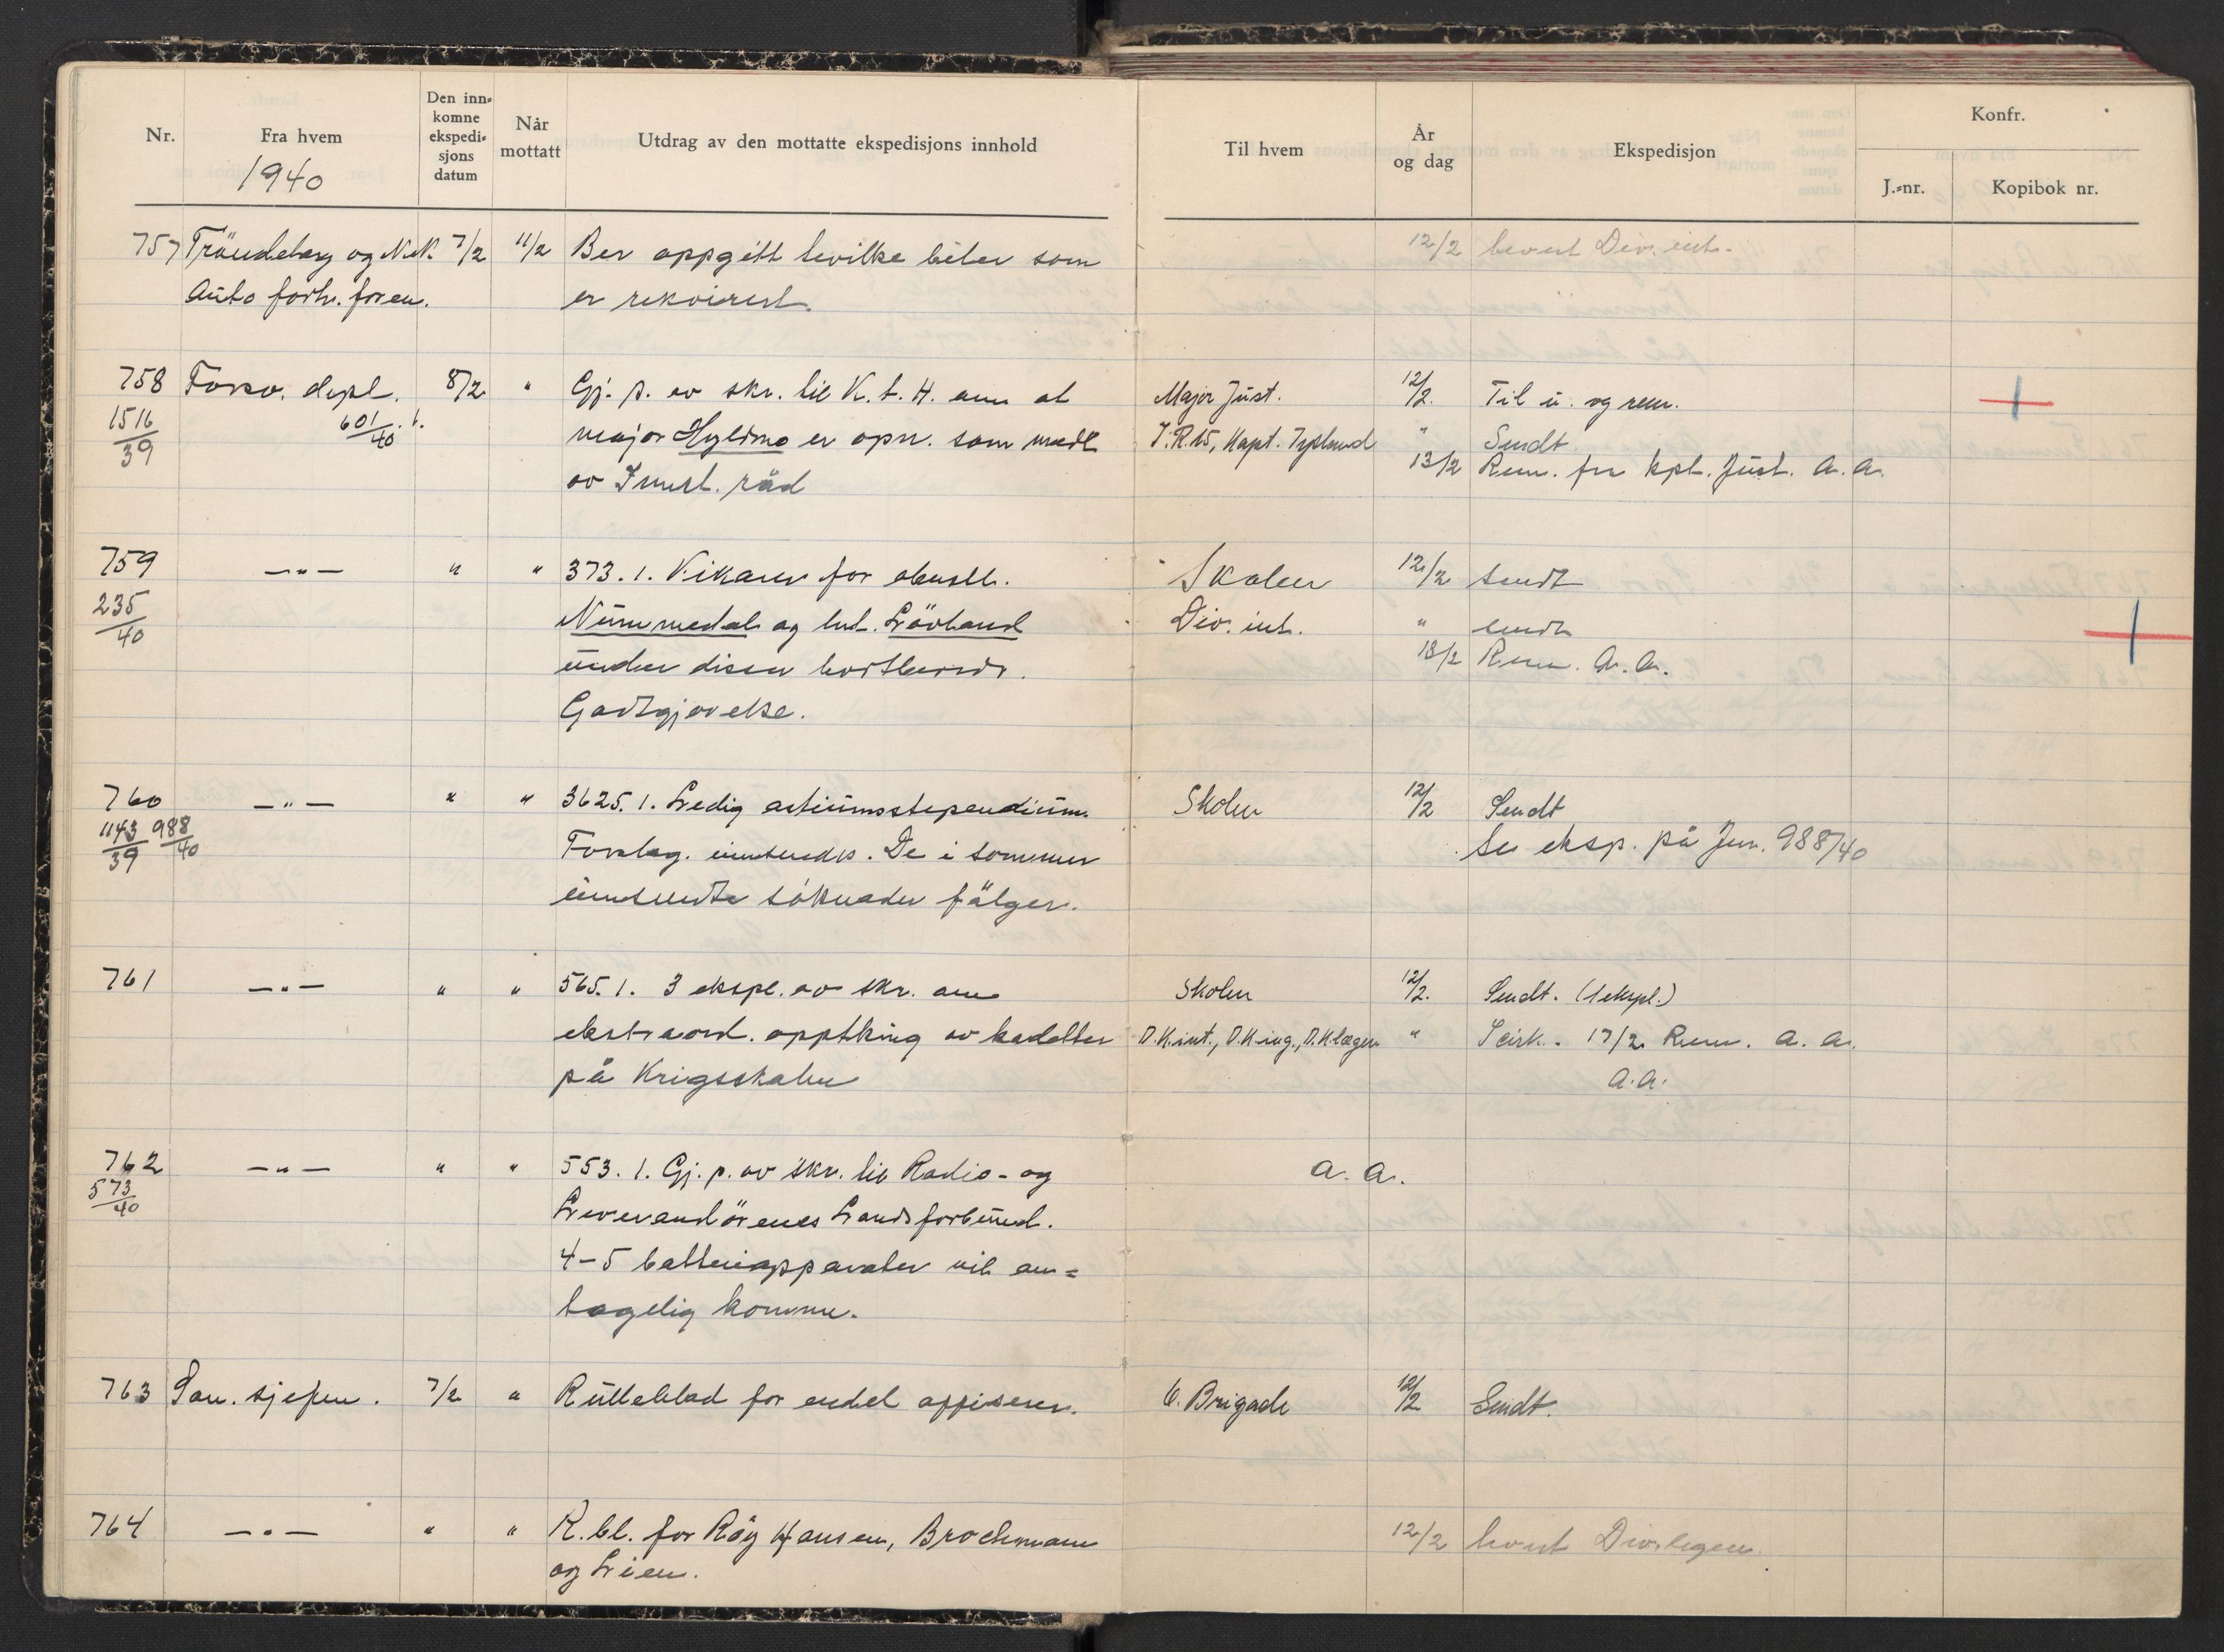 Nr.
Fra hvem
Den inn-
komne
ekspedi-
sjons
datum
Når
mottatt
Utdrag av den mottatte ekspedisjons innhold
Til hvem
År
og dag
Ekspedisjon
Konfr.
J.-nr.
Kopibok nr.
1940
757 Tröndelag og N.N. 7/2 11/2 Ber oppgitt hvilke biler som 12/2 levert Div. int.
Auto forh. foren. er rekvirert.
758 Forsv. dept. 8/2 " Gj. p. av skr. til K. t. H. om at Major Just. 12/2. Til u. og rem.
1516/39 601/40.1. major Hyldmo er opn. som medl. I.R.15, Kapt. " Sendt
av råd 13/2 Rem. fra kpt. Just. A. A.
759 —"— " " 373.1. Vikarer for Skolen 12/2 sendt
235/40 Nummedal og lnt. Lövland Div. int. " sendt
under disses Rem. A. A.
Godtgjørelse.
760 —"— " " 3625.1. Ledig artiumsstipendium. Skolen 12/2 Sendt
1143/39 988/40 Forslag. innsendes. De i sommer Se eksp. på Jnr. 988/40
innsendte søknader følger.
761 —"— " " 565.1. 3 ekspl. av skr. om Skolen 12/2. Sendt. (1 ekspl.)
ekstraord. opptking av kadetter D.K.int., D.K.ing., D.K.lægen " Scirk. 17/2 Rem. A. A.
på Krigsskolen A.A.
762 —"— " " 553.1. Gj. p. av skr. til Radio- og A. A.
573/40 Leverandörenes Landsforbund.
4-5 batteriapparater vil an-
tagelig komme.
763 San. sjefen. 7/2 " Rulleblad for endel offiserer. 6. Brigade 12/2 Sendt.
764 —"— " " R. bl. for Röy Hansen, Brochmann 12/2 levert Div.legen.
og Lien.